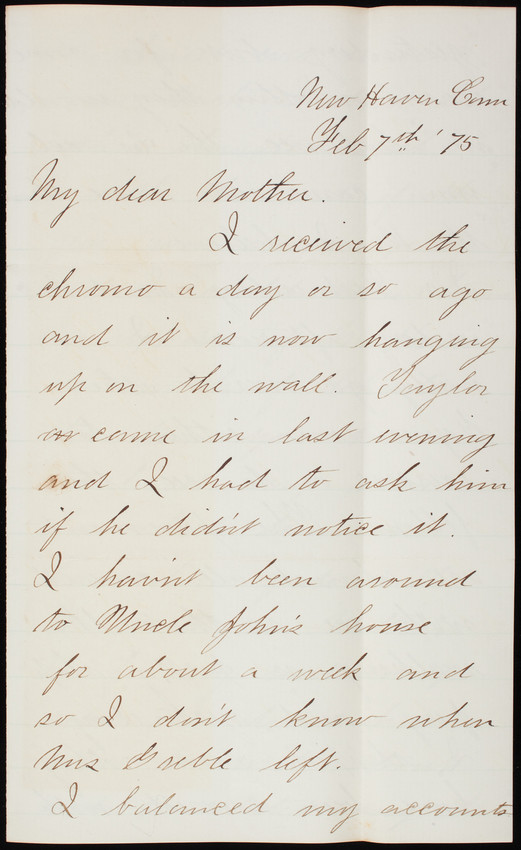 New Haven Conn
Feb 7th '75
My dear Mother.
I received the
chromo a day or so ago
and it is now hanging
up on the wall. Taylor
came in last evening
and I had to ask him
if he didn't notice it.
I havn't been around
to Uncle John's house
for about a week and
so I don't know when
Mrs Greble left.
I balanced my accounts